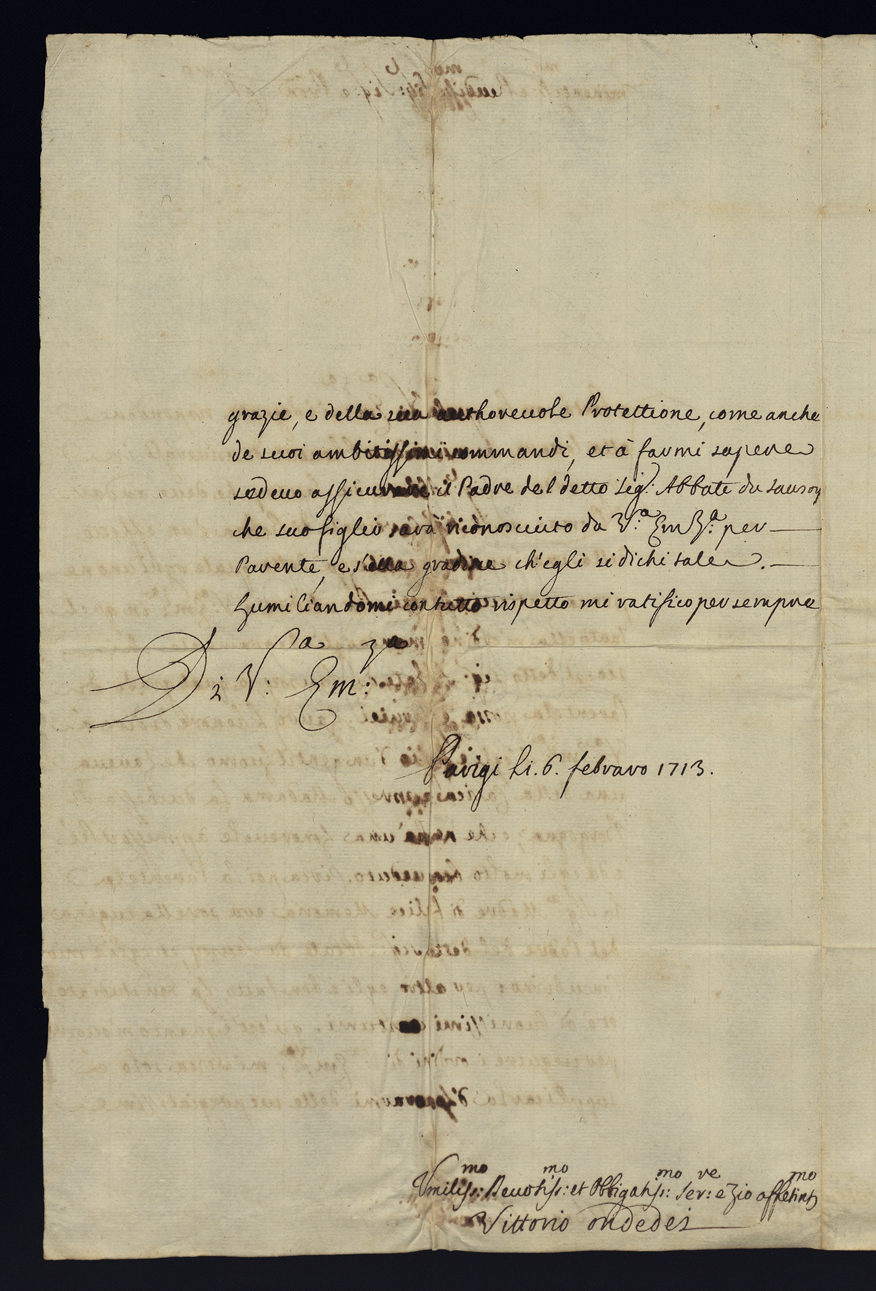 grazie, e della sua authoreuole Protettione, come anche
de suoi ambitissimi commandi, et à farmi sapere
se deuo assicurare il Padre del detto Sig.r Abbate du Sauroy
che suo figlio sarà riconosciuto da V.a Em.za per
Parente, e s'ella gradine ch'egli si dichi tale.
Humiliandomi con tutto rispetto mi ratifico per sempre
Di V.a Em.za
Parigi li. 6. febraro 1713.
Vmiliss:mo Deuotiss:mo et Obligatiss:mo Ser:re e Zio affetint
Vittorio ondedei